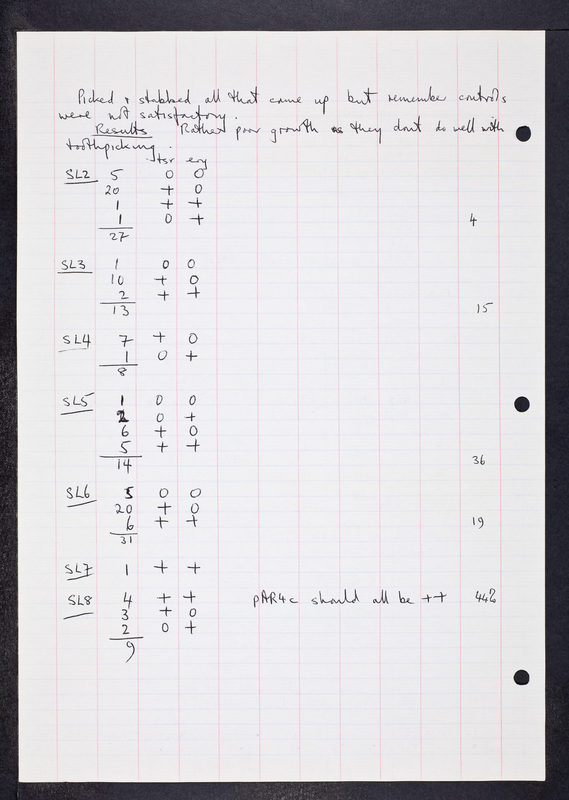 Picked & stabbed all that came up but remember controls
were not satisfactory.
Results Rather poor growth as they don't do well with
toothpicking.
tsr ery
SL2 5 0 0
20 + 0
1 + +
1 0 + 4
27
SL3 1 0 0
10 + 0
2 + +
13 15
SL4 7 + 0
1 0 +
8
SL5 1 0 0
2 0 +
6 + 0
5 + +
14 36
SL6 5 0 0
20 + 0
6 + + 19
31
SL7 1 + +
SL8 4 + + pAR4c should all be ++ 44%
3 + 0
2 0 +
9